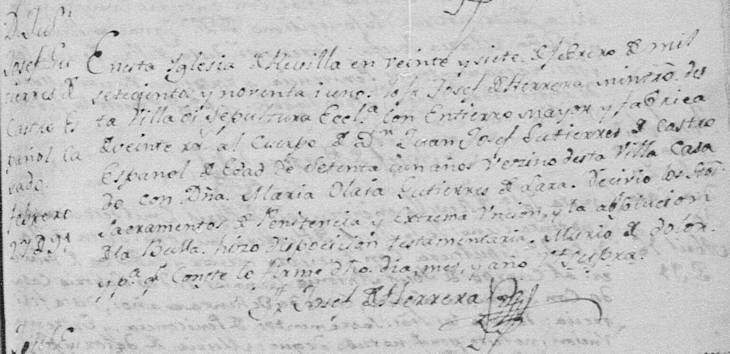 Dn. Jun.
Josef Gu
tierres d
Castro Es
pañol, Ca
sado.
febrero
27 D 91
En esta Iglesia de Revilla en veinte y siete d febrero d mil
setecients. y noventa i uno. Yo fr. Josef d Herrera, ministro. des
ta Villa di Sepultura Eccl.a con Entierro mayor y fabrica
d veinte rr.s al Cuerpo d Dn. Juan Josef Gutierres d Castro
Español d Edad de Setenta i un años Vezino desta Villa Casa
do con Dña. Maria Olaia Gutierres d Lara. Recivio los Stos.
Sacramentos d Penitencia y extrema Uncion, y la absolucion
d la Bulla. hizo disposicion testamentaria. Murio d dolor.
y p.a q.e Conste lo firmé dho. dia, mes, y año Vt. supra.
Fr. Josef d Herrera